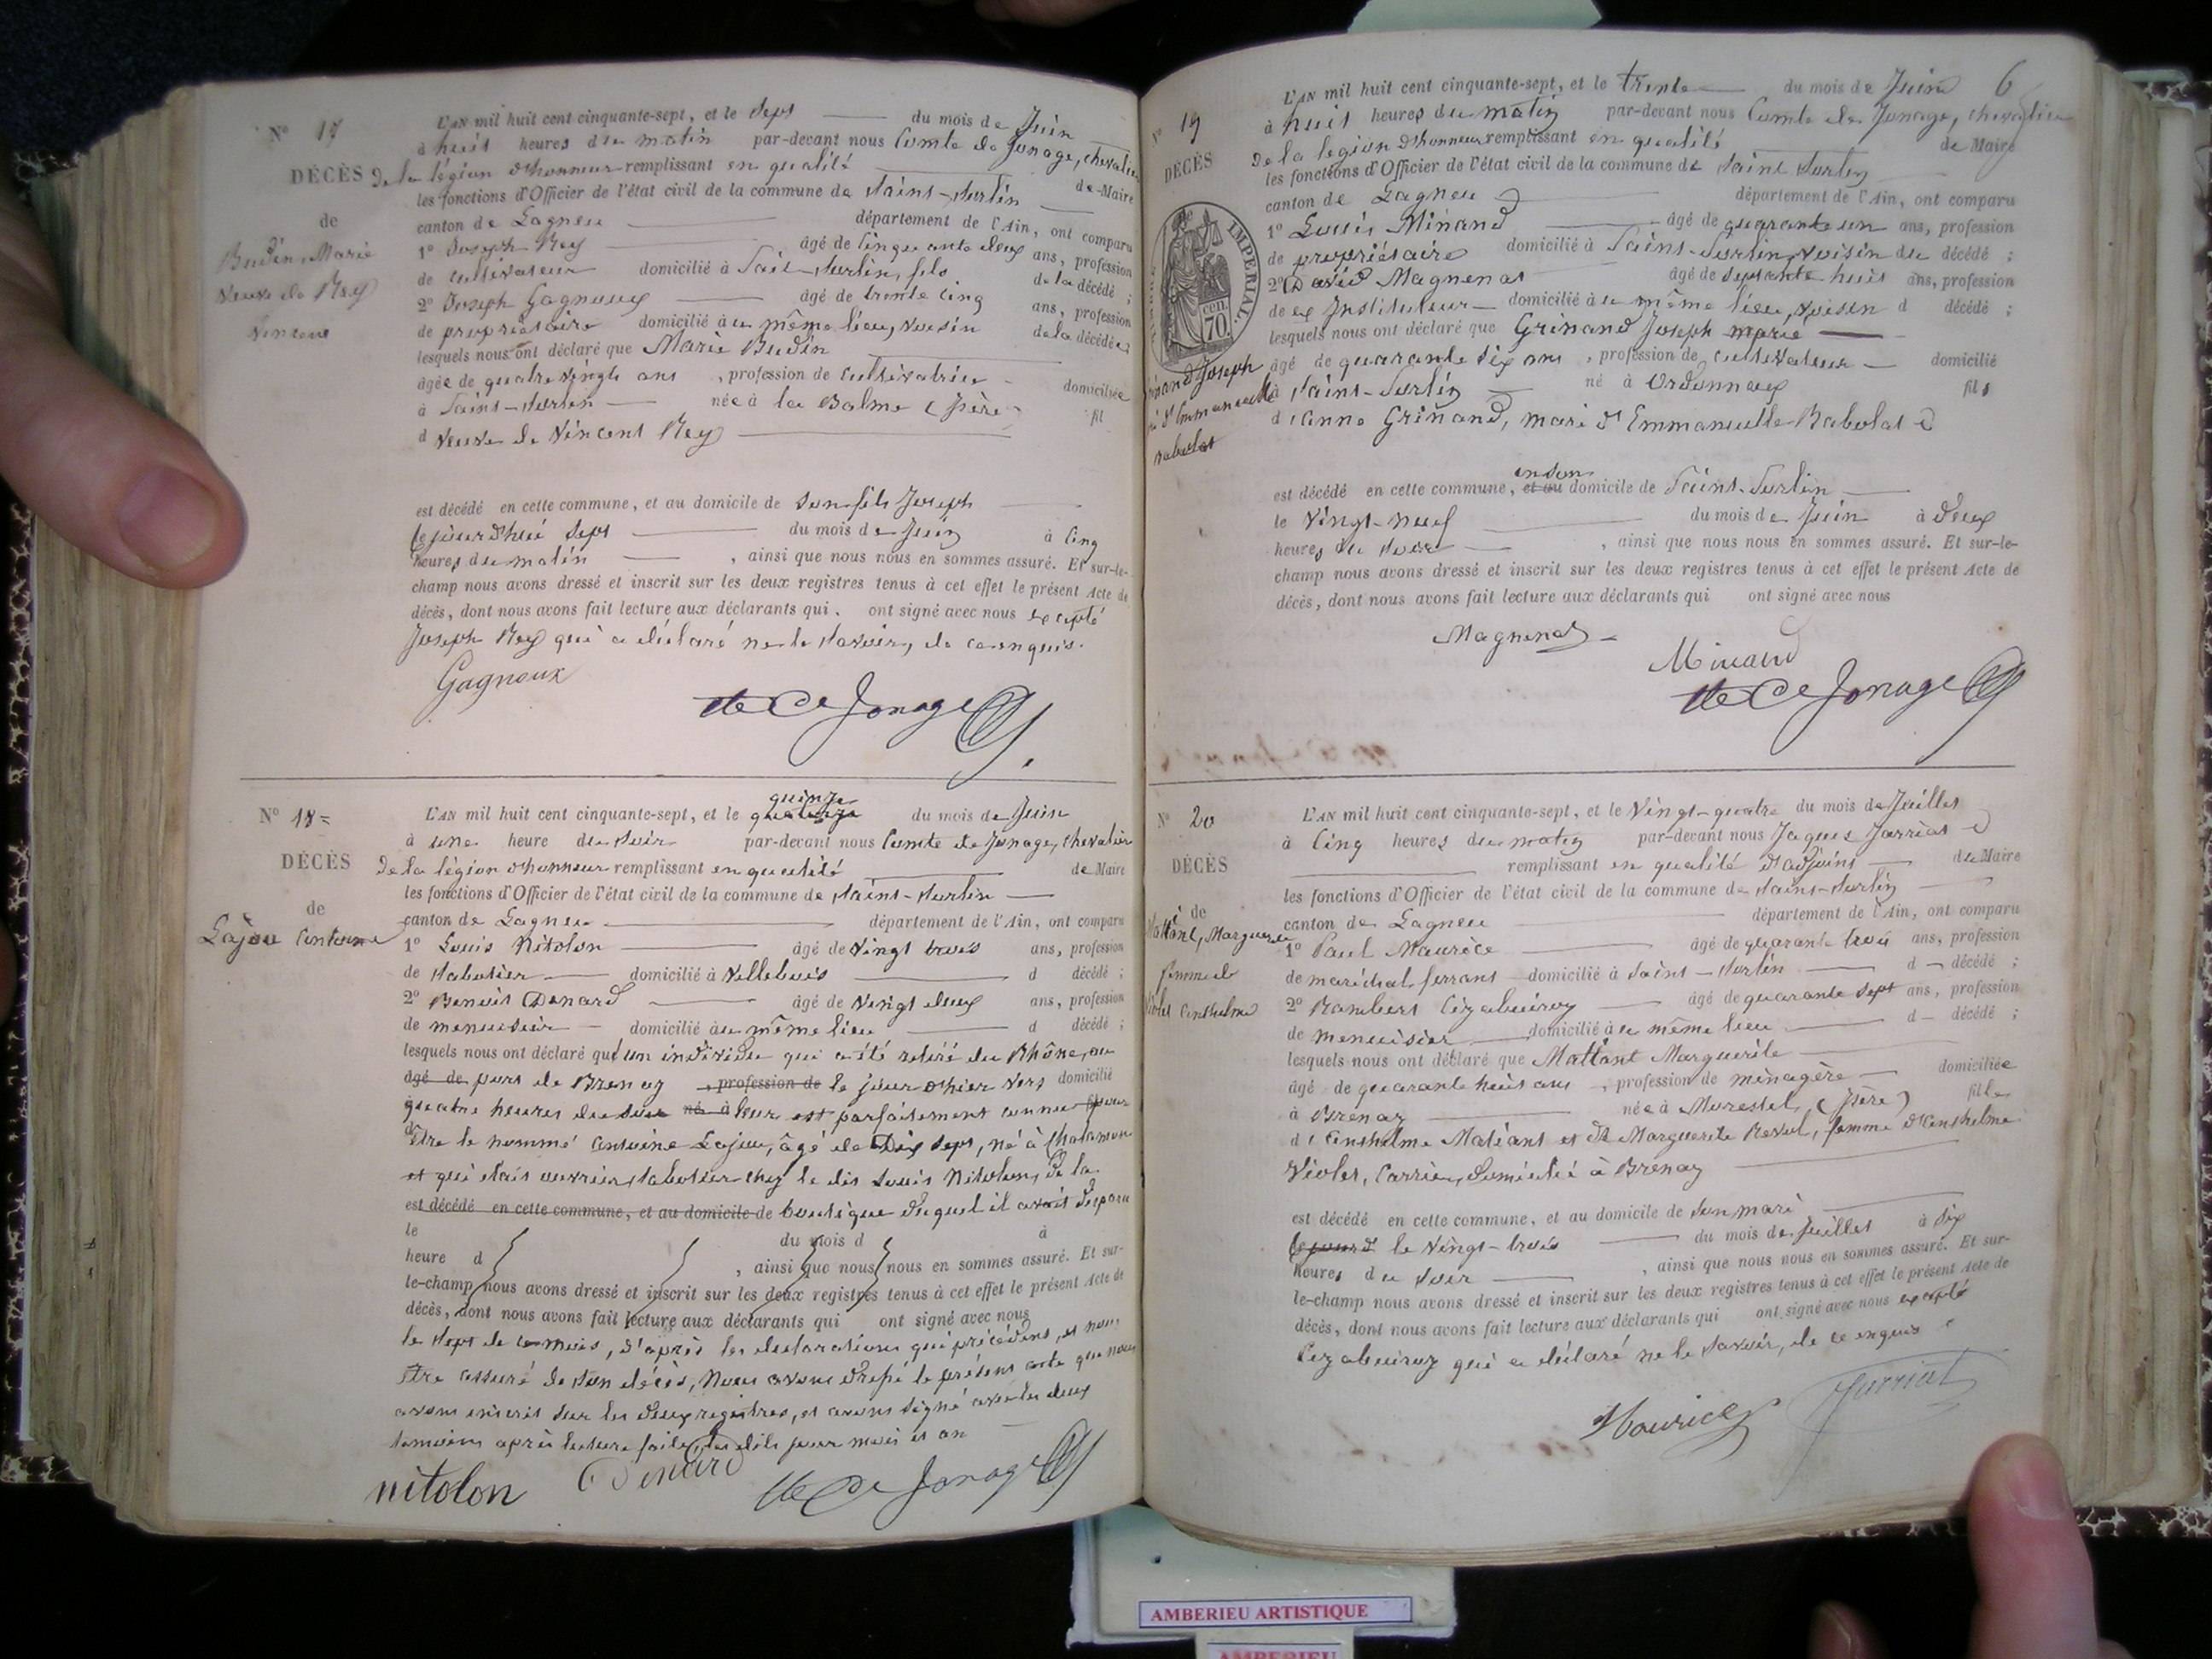 N° 17
DÉCÈS
de
Budin, Marie
Veuve de Rey
Vincent
L'AN mil huit cent cinquante-sept, et le sept du mois de Juin
à huit heures du matin par-devant nous Comte de Jonage, chevalier
de la légion d'honneur remplissant en qualité de Maire
les fonctions d'Officier de l'état civil de la commune de Saint-Sorlin
canton de Lagneu département de l'Ain, ont comparu
1° Joseph Rey âgé de cinquante deux ans, profession
de cultivateur domicilié à Saint-Sorlin, fils de la décédé ;
2° Joseph Gagneux âgé de trente cinq ans, profession
de propriétaire domicilié à ce même lieu, voisin de la décédée ;
lesquels nous ont déclaré que Marie Budin
âgée de quatre vingts ans , profession de cultivatrice domiciliée
à Saint-Sorlin née à la Balme (Isère) fil
d veuve de Vincent Rey
est décédé en cette commune, et au domicile de son fils Joseph
cejourd'hui sept du mois de Juin à cinq
heures du matin , ainsi que nous nous en sommes assuré. Et sur-le-
champ nous avons dressé et inscrit sur les deux registres tenus à cet effet le présent Acte de
décès, dont nous avons fait lecture aux déclarants qui ont signé avec nous excepté
Joseph Rey qui a déclaré ne le savoir, de ce enquis.
Gagneux
de Jonage
N° 18=
DÉCÈS
de
Lajou Antoine
L'AN mil huit cent cinquante-sept, et le quinze du mois de Juin
à une heure du soir par-devant nous Comte de Jonage, chevalier
de la légion d'honneur remplissant en qualité de Maire
les fonctions d'Officier de l'état civil de la commune de Saint-Sorlin
canton de Lagneu département de l'Ain, ont comparu
1° Louis Nitolon âgé de vingt trois ans, profession
de sabotier domicilié à Villebois d décédé ;
2° Benoit Denard âgé de vingt deux ans, profession
de menuisier domicilié à ce même lieu d décédé ;
lesquels nous ont déclaré qu'un individu qui a été retiré du Rhône, au
âgé de port de Brenaz , profession de le jour d'hier vers domicilié
quatre heures du soir né à leur est parfaitement connu pour
être le nommé Antoine Lajou, âgé de dix sept, né à Chalamon
et qui était ouvrier sabotier chez le dit Louis Nitolon, de la
est décédé en cette commune, et au domicile de boutique duquel il avait disparu
le du mois d à
heure d , ainsi que nous nous en sommes assuré. Et sur-
le-champ nous avons dressé et inscrit sur les deux registres tenus à cet effet le présent Acte de
décès, dont nous avons fait lecture aux déclarants qui ont signé avec nous
le sept de ce mois, d'après les déclarations qui précèdent, et nous
être assuré de son décès, Nous avons dressé le présent acte que nous
avons inscrit sur les deux registres, et avons signé avec les deux
témoins après lecture faite, les dits jour mois et an
nitolon Denard de Jonage
6
N° 19
DÉCÈS
IMPERIAL.
70.
cen
Grinand Joseph
Rabolat
L'AN mil huit cent cinquante-sept, et le trente du mois de Juin
à huit heures du matin par-devant nous Comte de Jonage, chevalier
de la légion d'honneur remplissant en qualité de Maire
les fonctions d'Officier de l'état civil de la commune de Saint Sorlin
canton de Lagneu département de l'Ain, ont comparu
1° Louis Minand âgé de quarante un ans, profession
de propriétaire domicilié à Saint-Sorlin, voisin du décédé ;
2° David Magnenat âgé de septante huit ans, profession
de ex Instituteur domicilié à ce même lieu, voisin d décédé ;
lesquels nous ont déclaré que Grinand Joseph marie
âgé de quarante dix ans , profession de cultivateur domicilié
à Saint-Sorlin né à Ordonnaux fils
d'Anne Grinand, mari d'Emmanuelle Rabolat
est décédé en cette commune, et au en son domicile de Saint-Sorlin
le vingt-neuf du mois de Juin à deux
heures du soir , ainsi que nous nous en sommes assuré. Et sur-le-
champ nous avons dressé et inscrit sur les deux registres tenus à cet effet le présent Acte de
décès, dont nous avons fait lecture aux déclarants qui ont signé avec nous
Magnenat
Minand
de Jonage
N° 20
DÉCÈS
de
Mattant, Marguerite
femme de
Violet Anthelme
L'AN mil huit cent cinquante-sept, et le vingt-quatre du mois de Juillet
à cinq heures du matin par-devant nous Jaques Jarriat
remplissant en qualité d'adjoint du Maire
les fonctions d'Officier de l'état civil de la commune de Saint-Sorlin
canton de Lagneu département de l'Ain, ont comparu
1° Paul Maurice âgé de quarante trois ans, profession
de maréchal ferrant domicilié à Saint-Sorlin d décédé ;
2° Rambert Cizabuiroz âgé de quarante sept ans, profession
de menuisier domicilié à ce même lieu d décédé ;
lesquels nous ont déclaré que Mattant Marguerite
âgé de quarante huit ans , profession de ménagère domiciliée
à Brenaz née à Morestel (Isère) fille
d'Anthelme Matiant et de Marguerite Revol, femme d'Anthelme
Violet, Carrier, domicilié à Brenaz
est décédé en cette commune, et au domicile de son mari
le vingt-trois du mois de Juillet à dix
heures du soir , ainsi que nous nous en sommes assuré. Et sur-
le-champ nous avons dressé et inscrit sur les deux registres tenus à cet effet le présent Acte de
décès, dont nous avons fait lecture aux déclarants qui ont signé avec nous excepté
Cizabuiroz qui a déclaré ne le savoir, de ce enquis
Maurice Jarriat
AMBERIEU ARTISTIQUE
AMBERIEU